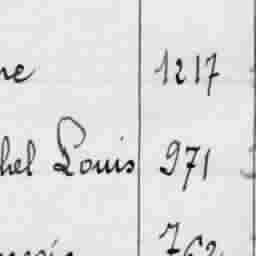 ne 1217
hel Louis 971
762